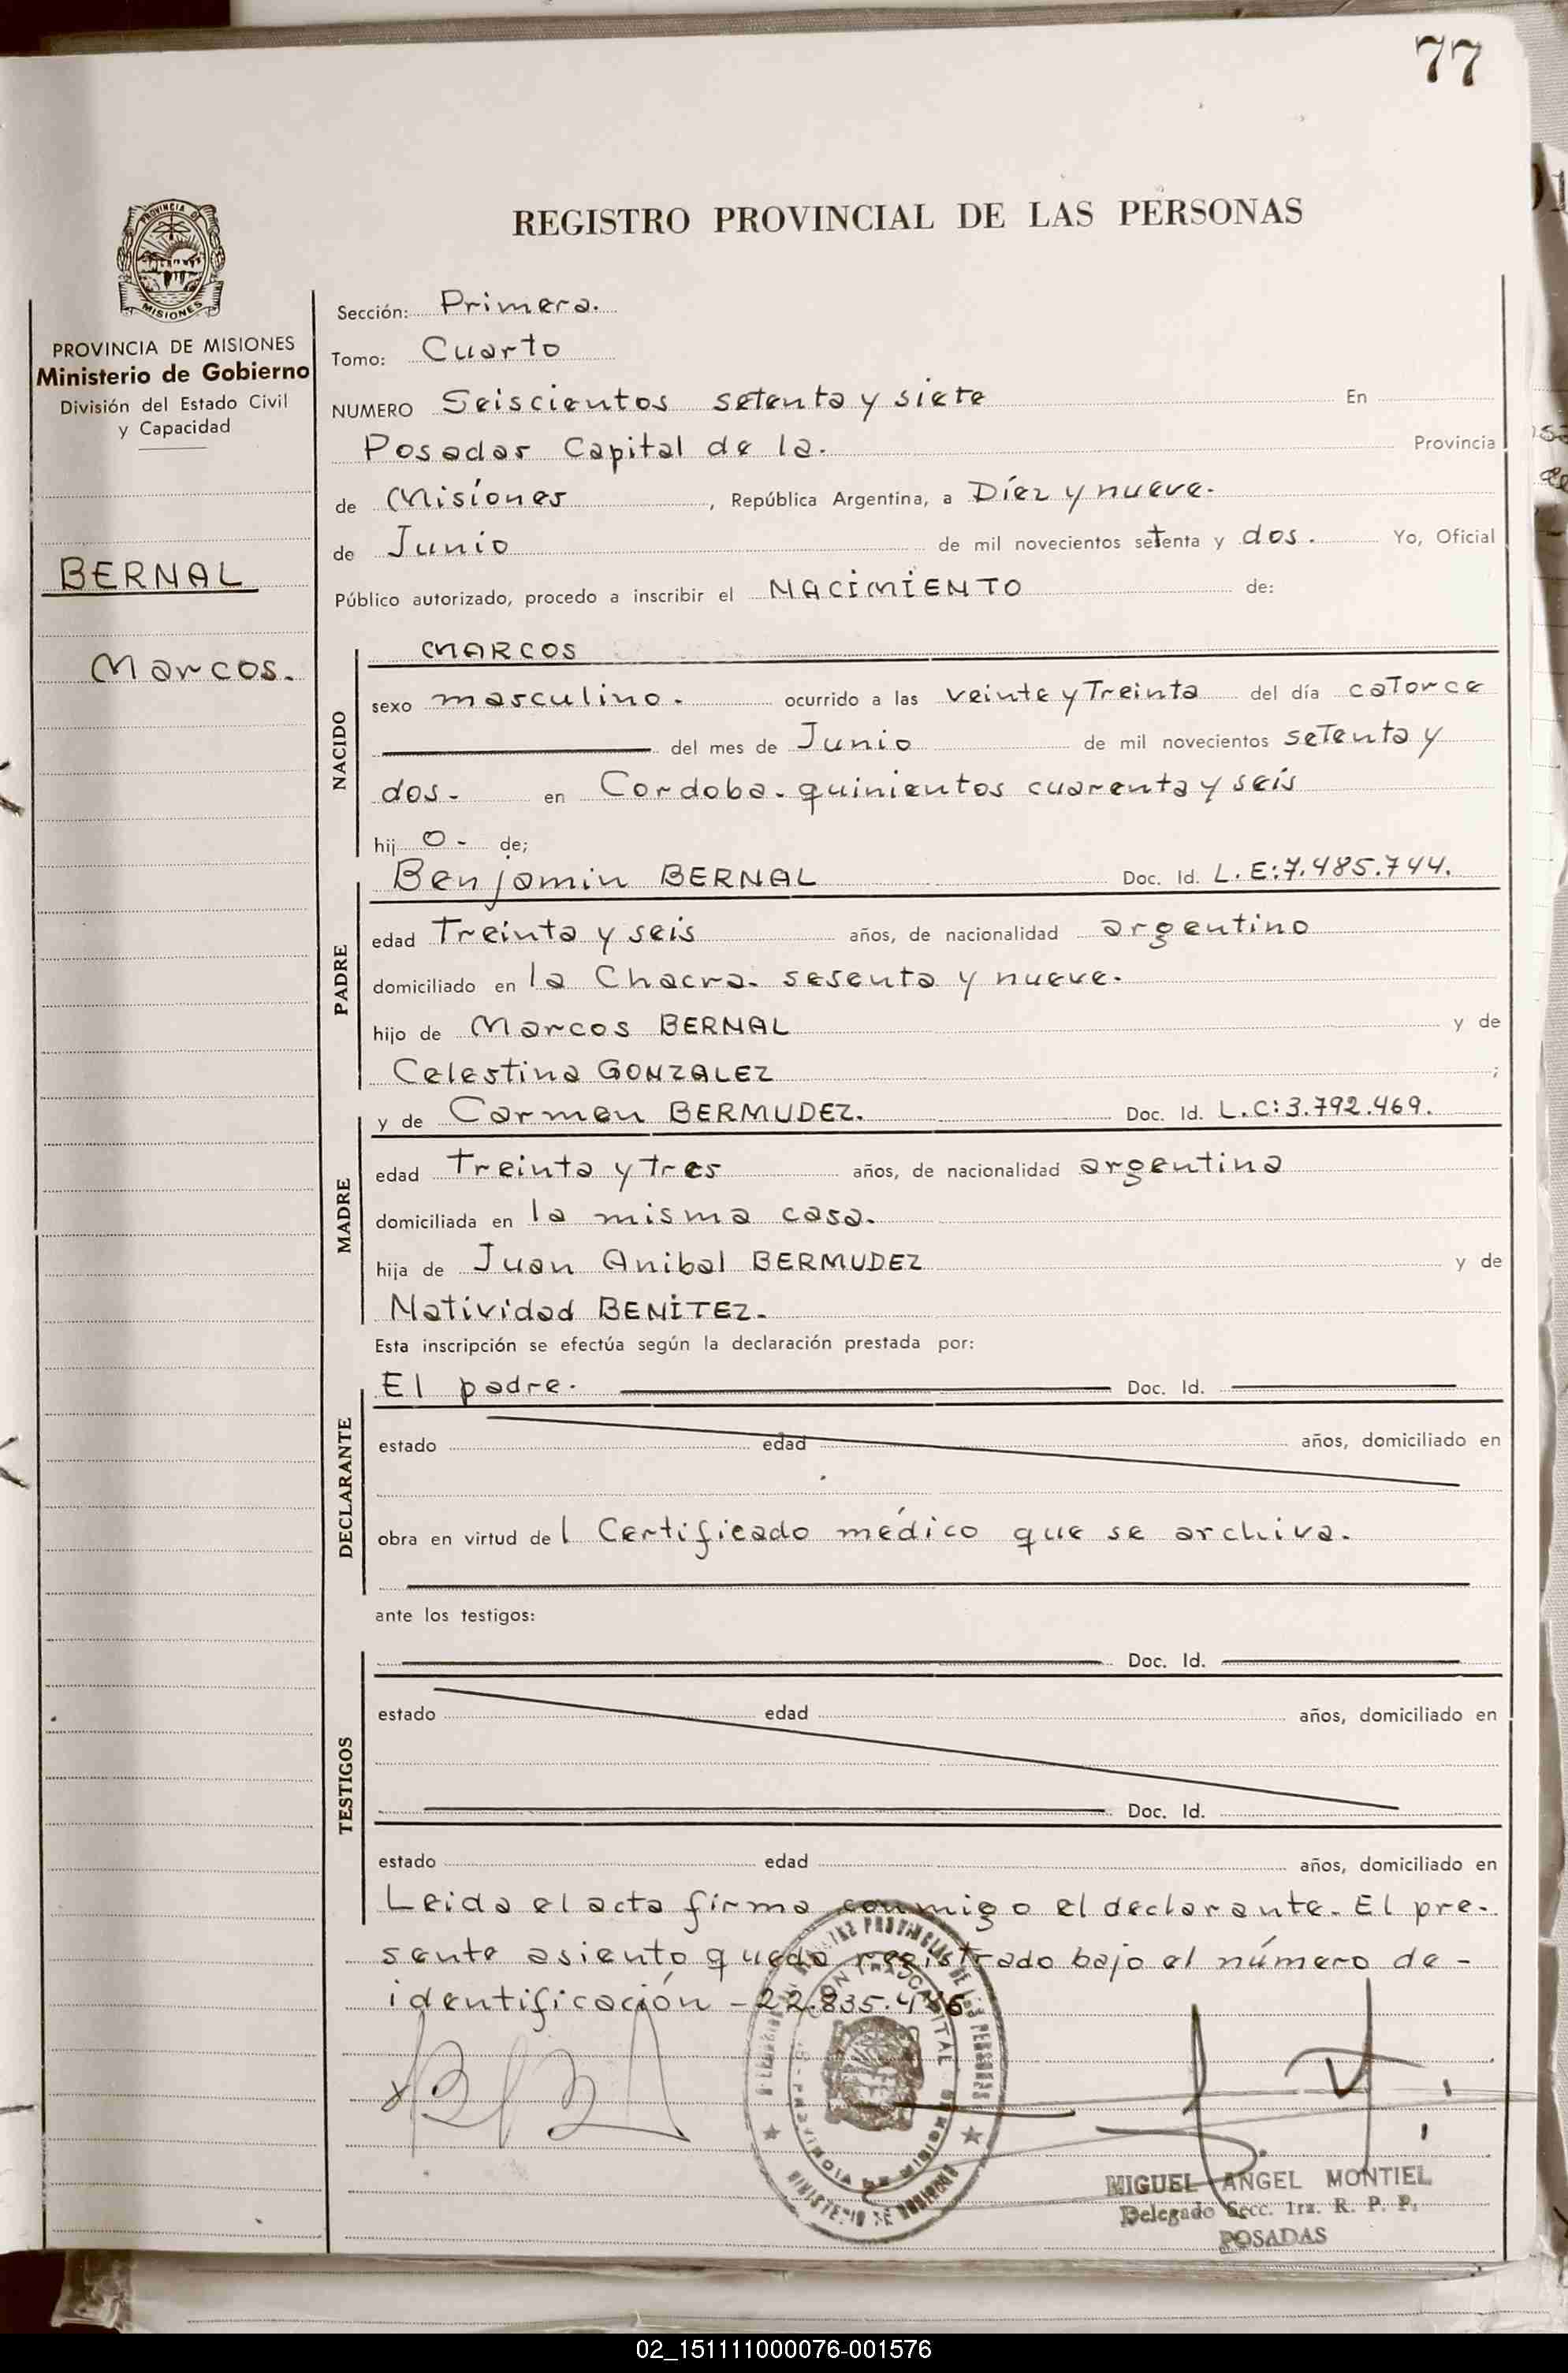 77
PROVINCIA DE
MISIONES
REGISTRO PROVINCIAL DE LAS PERSONAS
PROVINCIA DE MISIONES
Ministerio de Gobierno
División del Estado Civil
y Capacidad
BERNAL
Marcos.
Sección: Primera.
Tomo: Cuarto
NUMERO Seiscientos setenta y siete En
Posadas Capital de la. Provincia
de Misiones, República Argentina, a Diez y nueve.
de Junio de mil novecientos setenta y dos. Yo, Oficial
Público autorizado, procedo a inscribir el NACIMIENTO de:
NACIDO
MARCOS
sexo masculino. ocurrido a las veinte y Treinta del día catorce
del mes de Junio de mil novecientos setenta y
dos. en Cordoba. quinientos cuarenta y seis
hij o - de;
PADRE
Benjamin BERNAL Doc. Id. L.E:7.485.744.
edad Treinta y seis años, de nacionalidad argentino
domiciliado en la Chacra. sesenta y nueve.
hijo de Marcos BERNAL y de
Celestina GONZALEZ ;
MADRE
y de Carmen BERMUDEZ. Doc. Id. L.C:3.792.469.
edad Treinta y tres años, de nacionalidad argentina
domiciliada en la misma casa.
hija de Juan Anibal BERMUDEZ y de
Natividad BENITEZ.
Esta inscripción se efectúa según la declaración prestada por:
DECLARANTE
El padre. Doc. Id.
estado edad años, domiciliado en
obra en virtud de l Certificado médico que se archiva.
ante los testigos:
TESTIGOS
Doc. Id.
estado edad años, domiciliado en
Doc. Id.
estado edad años, domiciliado en
Leida el acta firma conmigo el declarante. El pre-
sente asiento queda registrado bajo el número de -
identificación - 22.835.
MINISTERIO DE GOBIERNO
MIGUEL ANGEL MONTIEL
Delegado Secc. 1ra. R. P. P.
POSADAS
02_151111000076-001576